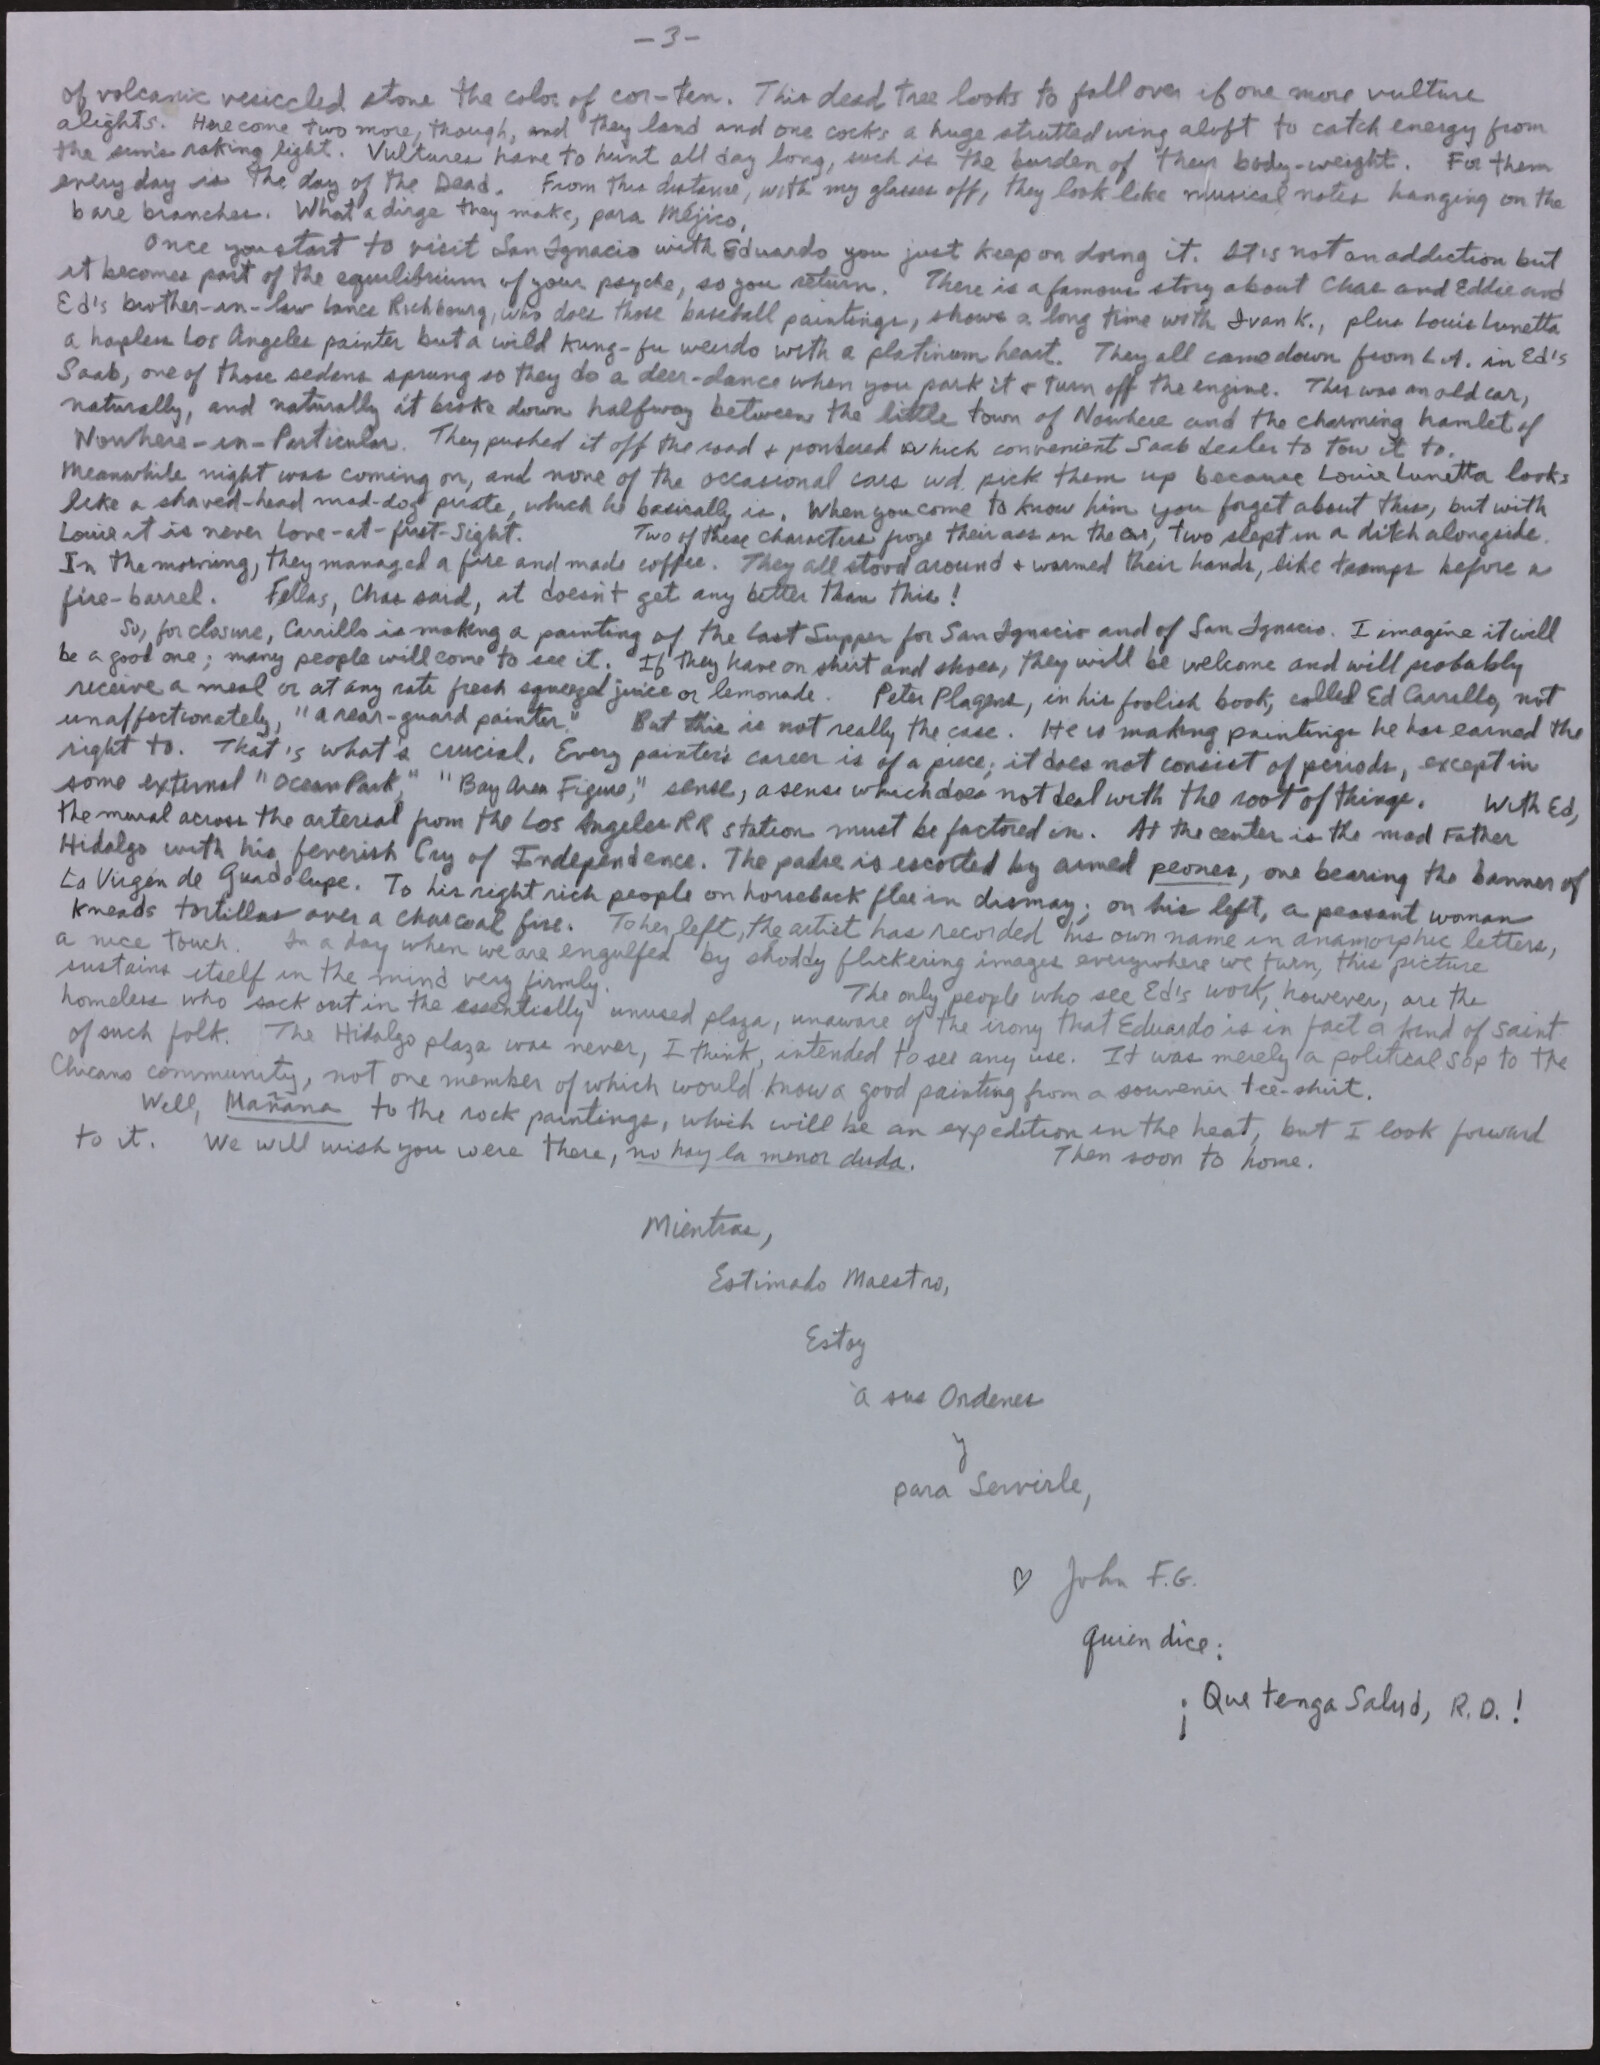 -3-
of volcanic vesiccled stone the color of cor-ten. This dead tree looks to fall over if one more vulture
alights. Here come two more, though, and they land and one cocks a huge strutted wing aloft to catch energy from
the sun's raking light. Vultures have to hunt all day long, such is the burden of their body-weight. For them
every day is the day of the Dead. From this distance, with my glasses off, they look like musical notes hanging on the
bare branches. What a dirge they make, para Méjico.
Once you start to visit San Ignacio with Eduardo you just keep on doing it. It is not an addiction but
it becomes part of the equilibrium of your psyche, so you return. There is a famous story about Chas and Eddie and
Ed's brother-in-law Lance Richbourg, who does those baseball paintings, shows a long time with Ivan K., plus Louis Lunetta
a hapless Los Angeles painter but a wild kung-fu weirdo with a platinum heart. They all came down from L.A. in Ed's
Saab, one of those sedans sprung so they do a deer-dance when you park it & turn off the engine. This was an old car,
naturally, and naturally it broke down halfway between the little town of Nowhere and the charming hamlet of
Nowhere-in-Particular. They pushed it off the road & pondered which convenient Saab dealer to tow it to.
Meanwhile night was coming on, and none of the occasional cars wd. pick them up because Louie Lunetta looks
like a shaved-head mad-dog pirate, which he basically is. When you come to know him you forget about this, but with
Louie it is never Love-at-first-Sight. Two of these characters froze their ass in the car, two slept in a ditch alongside.
In the morning, they managed a fire and made coffee. They all stood around & warmed their hands, like tramps before a
fire-barrel. Fellas, Chas said, it doesn't get any better than this!
So, for closure, Carrillo is making a painting of the Last Supper for San Ignacio and of San Ignacio. I imagine it will
be a good one; many people will come to see it. If they have on shirt and shoes, they will be welcome and will probably
receive a meal or at any rate fresh squeezed juice or lemonade. Peter Plagens, in his foolish book, called Ed Carrillo, not
unaffectionately, "a rear-guard painter." But this is not really the case. He is making paintings he has earned the
right to. That's what's crucial. Every painter's career is of a piece; it does not consist of periods, except in
some external "Ocean Park," "Bay Area Figure," sense, a sense which does not deal with the root of things. With Ed,
the mural across the arterial from the Los Angeles RR station must be factored in. At the center is the mad Father
Hidalgo with his feverish Cry of Independence. The padre is escorted by armed peones, one bearing the banner of
La Virgén de Guadalupe. To his right rich people on horseback flee in dismay; on his left, a peasant woman
kneads tortillas over a charcoal fire. To her left, the artist has recorded his own name in anamorphic letters,
a nice touch. In a day when we are engulfed by shoddy flickering images everywhere we turn, this picture
sustains itself in the mind very firmly. The only people who see Ed's work, however, are the
homeless who sack out in the essentially unused plaza, unaware of the irony that Eduardo is in fact a kind of saint
of such folk. The Hidalgo plaza was never, I think, intended to see any use. It was merely a political sop to the
Chicano community, not one member of which would know a good painting from a souvenir tee-shirt.
Well, Mañana to the rock paintings, which will be an expedition in the heat, but I look forward
to it. We will wish you were there, no hay la menor duda. Then soon to home.
Mientras,
Estimado Maestro,
Estoy
a sus Ordenes
y
para Servirle,
♡ John F.G.
quien dice:
¡Que tenga Salud, R.D.!